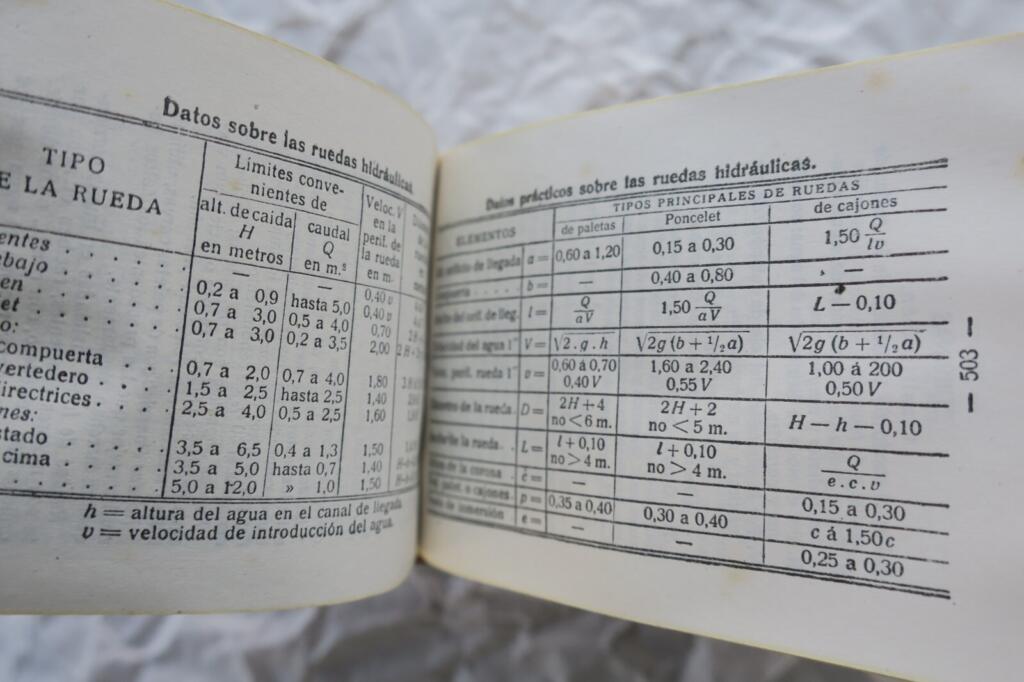 Datos sobre las ruedas hidráulicas
TIPO
E LA RUEDA
Límites conve-
nientes de
alt. de caida
H
en metros
caudal
Q
en m.³
Veloc. V
en la
perif. de
la rueda
en m.
entes . . . . — — 0,40 v
ebajo . . . . 0,2 a 0,9 hasta 5,0 0,40 v
en . . . . 0,7 a 3,0 0,5 a 4,0 0,70
let . . . . 0,7 a 3,0 0,2 a 3,5 2,00
o:
compuerta 0,7 a 2,0 0,7 a 4,0 1,80
vertedero 1,5 a 2,5 hasta 2,5 1,40
irectrices . . . . 2,5 a 4,0 0,5 a 2,5 1,60
nes:
stado . . . . 3,5 a 6,5 0,4 a 1,3 1,50
cima . . . . 3,5 a 5,0 hasta 0,7 1,40
. . . . 5,0 a 12,0 » 1,0 1,50
h = altura del agua en el canal de llegada.
v = velocidad de introducción del agua.
Datos prácticos sobre las ruedas hidráulicas.
ELEMENTOS
TIPOS PRINCIPALES DE RUEDAS
de paletas Poncelet de cajones
orificio de llegada a = 0,60 a 1,20 0,15 a 0,30 1,50 Q/lv
. . . . b = — 0,40 a 0,80 —
del orif. de lleg. l = Q/aV 1,50 Q/aV L — 0,10
del agua 1" V = √2.g.h √2g (b + ¹/₂a) √2g (b + ¹/₂a)
perif. rueda 1" v = 0,60 á 0,70 1,60 a 2,40 1,00 á 200
0,40 V 0,55 V 0,50 V
de la rueda. D = 2H+4 2H+2 H — h — 0,10
no < 6 m. no < 5 m.
la rueda. L = l+0,10 l+0,10 Q/e.c.v
no > 4 m. no > 4 m.
de la corona . c = — — 0,15 a 0,30
o cajones. p = 0,35 a 0,40 0,30 a 0,40 c á 1,50c
de inmersión e = — — 0,25 a 0,30
— 503 —